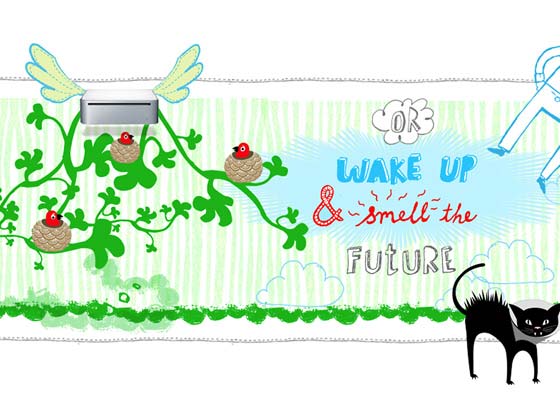 OR
WAKE UP
& smell the
FUTURE